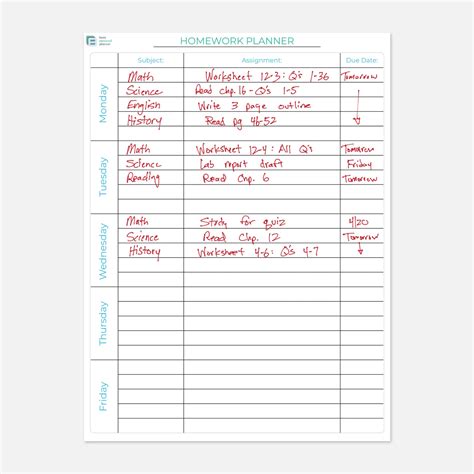 HOMEWORK PLANNER
Subject: Assignment: Due Date:
Monday
Math Worksheet 12-3: Q's 1-36 Tomorrow
Science Read Chp. 16 - Q's 1-5
English Write 3 page outline
History Read pg 46-52
Tuesday
Math Worksheet 12-4: All Q's Tomorrow
Science Lab report draft Friday
Reading Read Chp. 6 Tomorrow
Wednesday
Math Study for quiz 4/20
Science Read Chp. 12 Tomorrow
History Worksheet 4-6: Q's 4-7
Thursday
Friday